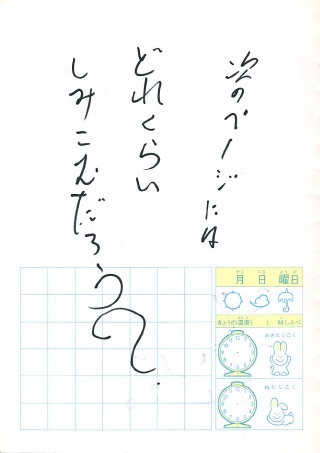 次のページには
どれくらい
しみこむだろう?
月 日 曜日
がつ にち ようび
きょうの温度( ) 料しらべ
おきたじこく
ねたじこく